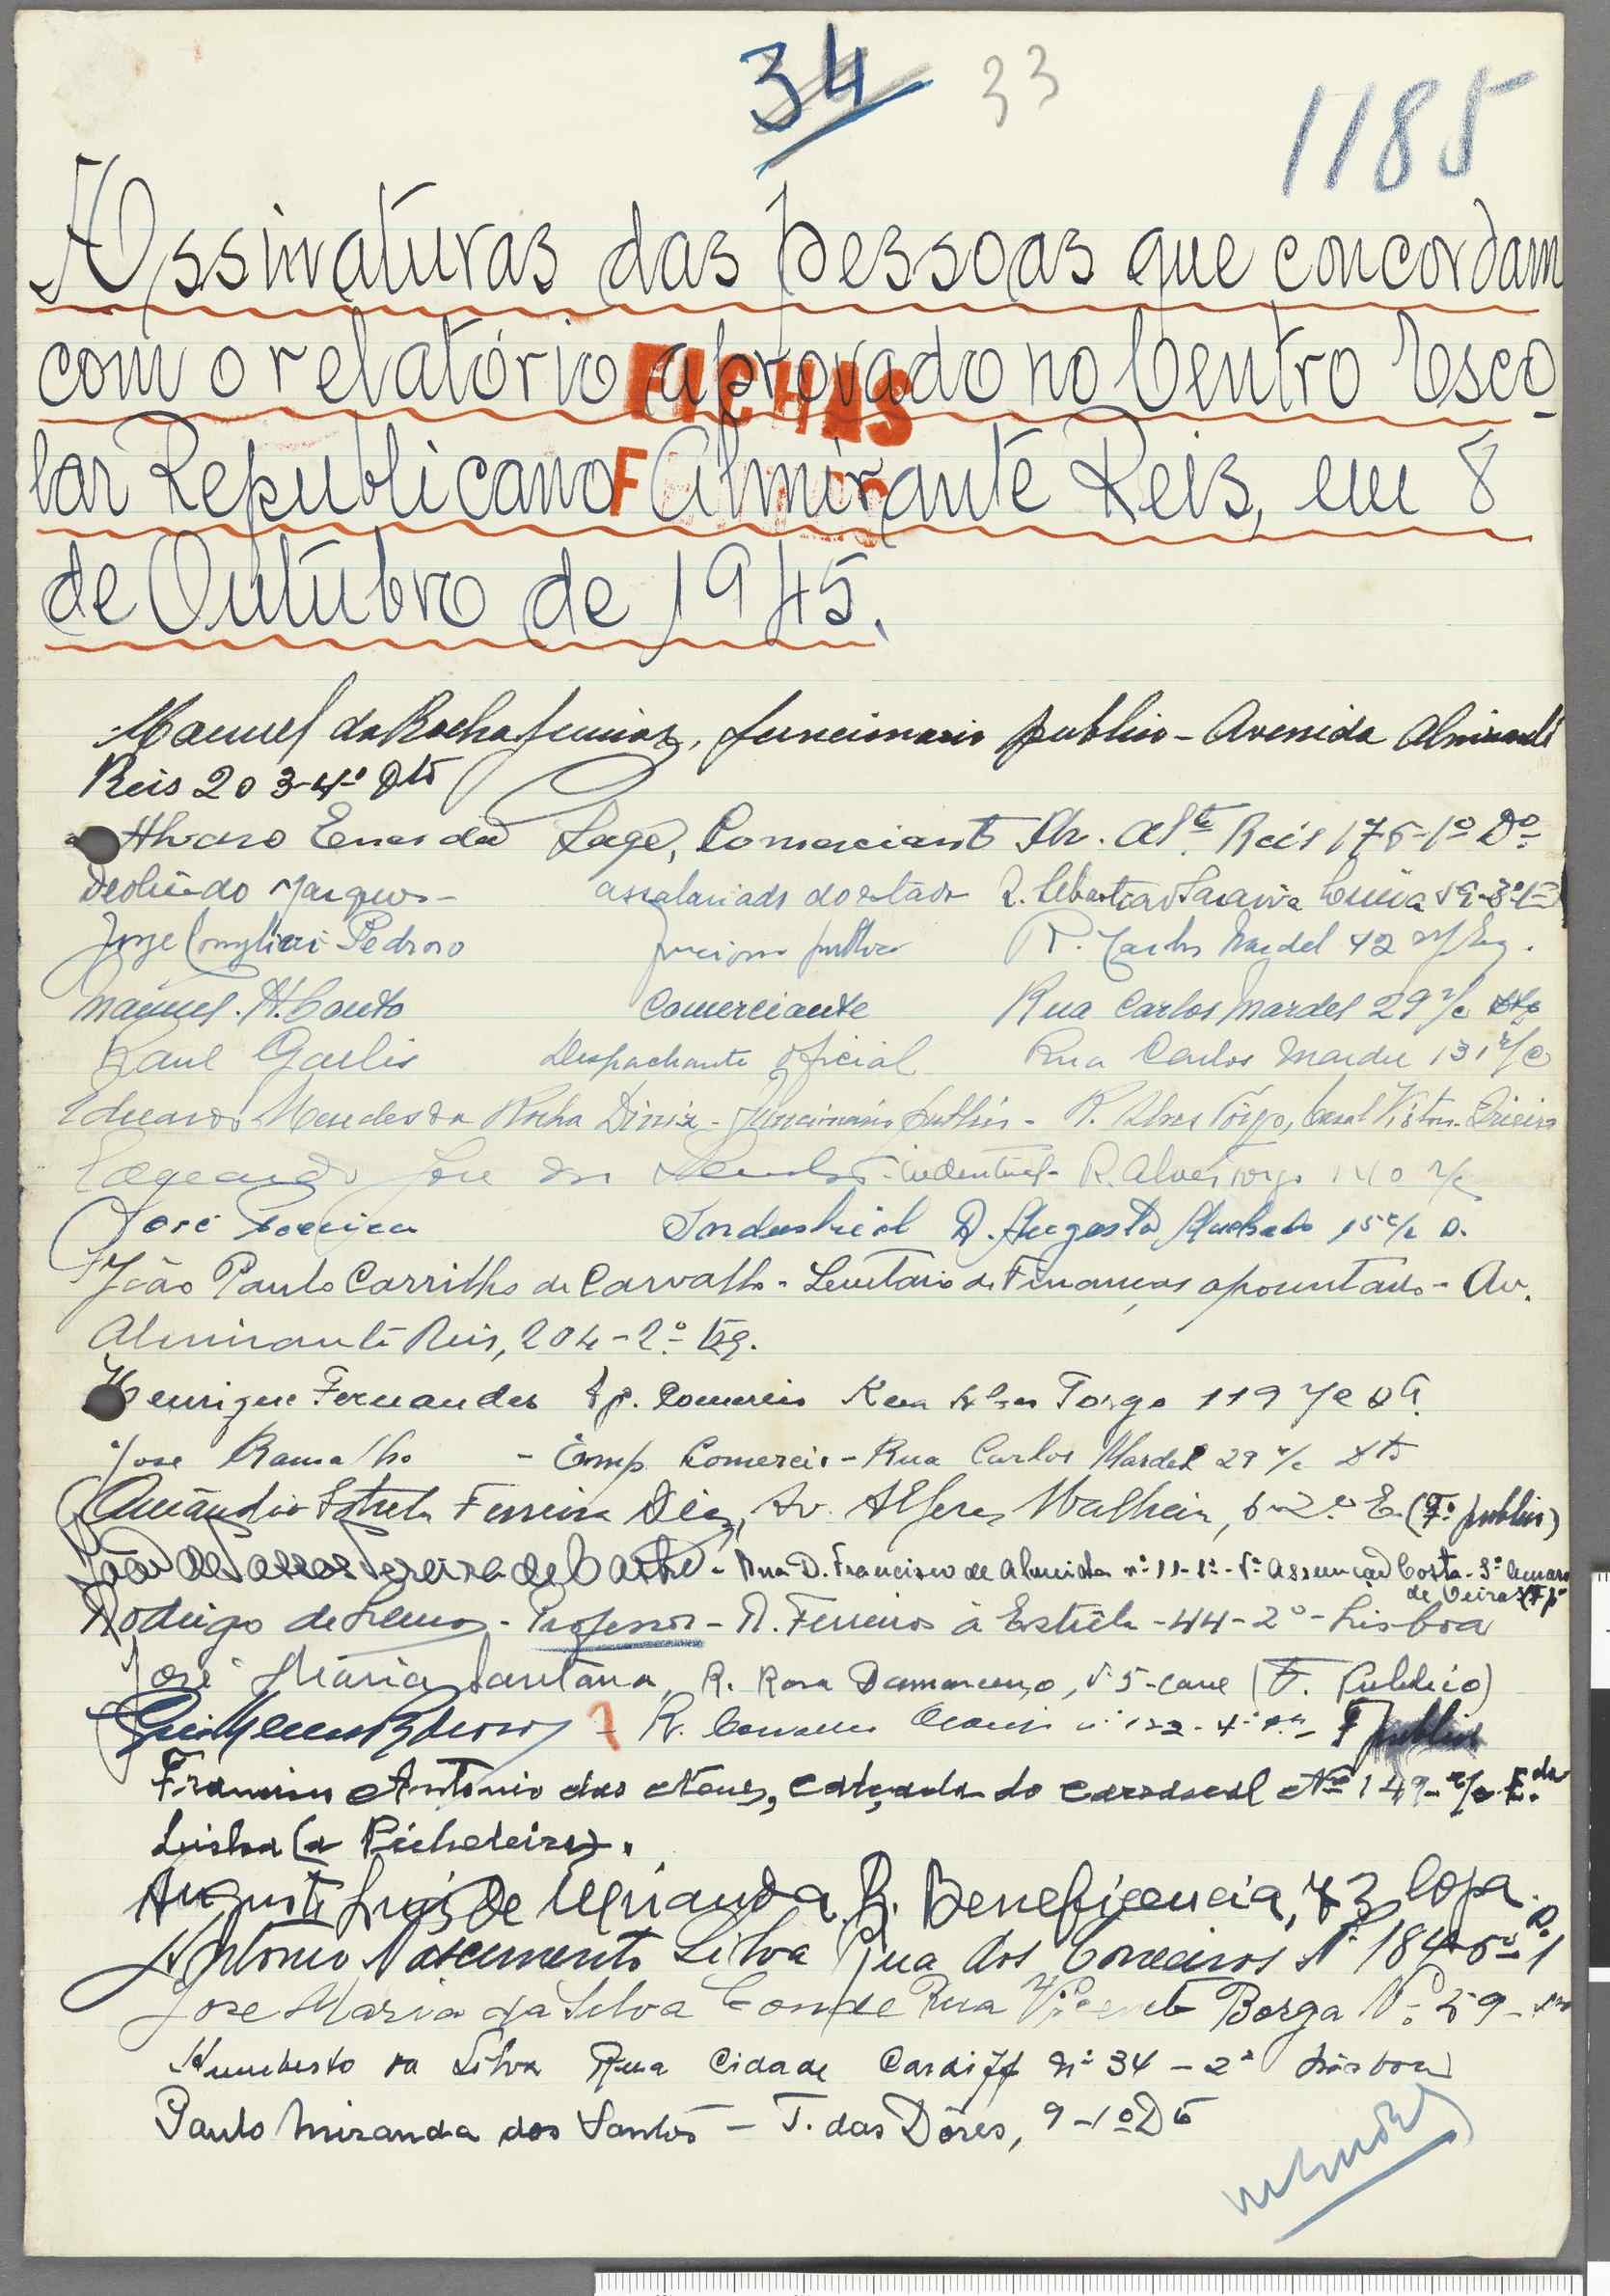 34 33
1185
Assinaturas das pessoas que concordam
com o relatório aprovado no Centro Esco-
lar Republicano Almirante Reis, em 8
de Outubro de 1945.
FICHAS
F
Manuel da Rocha Junior, funcionario publico - Avenida Almirante
Reis 203-4º Dto
Alvaro Eneas da Lage, Comerciante Av. Alte. Reis 176-1º Dº
Deolindo Marques - assalariado do estado R. Sebastião Saraiva Lima
Jorge Pedroso R. Carlos Mardel 42 r/c Esq.
Manuel. A. Couto Comerciante Rua Carlos Mardel 29 r/c Dto
Raul Despachante oficial Rua Carlos Mardel 131 r/c
Eduardo Mendes da Rocha Diniz - funcionario publico - R. Alves Torgo, Casal Vistoso
José da R. Alves Torgo 140 r/c
José Industrial R. Augusto Machado 15 r/c D.
João Paulo Carrilho de Carvalho - Secretario de Finanças aposentado - Av.
Almirante Reis, 204-2º Esq.
Henrique Fernandes Ep. Comercio Rua Alves Torgo 119 r/c
José Ramalho - Emp. Comercio - Rua Carlos Mardel 29 r/c Dto
Amândio Estrela Ferreira Dias, Av. Alferes Malheiro, 6-2º E. (Fº publico)
João de Pereira de Castro - Rua D. Francisco de Almeida nº 11-1º - Vª Assunção Costa - Sº Amaro
de Oeiras
Rodrigo de Lemos - Professor - R. Ferreiros à Estrêla - 44-2º - Lisboa
José Maria Santana, R. Rosa Damasceno, nº 5-cave (F. Publico)
Guilherme - R. nº 122-4º F publico
Francisco Antonio das Neves, calçada do carrascal Nº 149 - r/c E.da
Lisboa (a Picheleira).
Augusto Luís de Miranda R. Beneficencia, 73 loja.
António Nascimento Silva Rua dos Correeiros Nº 184-5º
José Maria da Silva Conde Rua Vicente Borga Nº 59
Humberto da Silva Rua Cidade Cardiff nº 34 - 2º Lisboa
Paulo Miranda dos Santos - T. das Dôres, 9-1º Dto